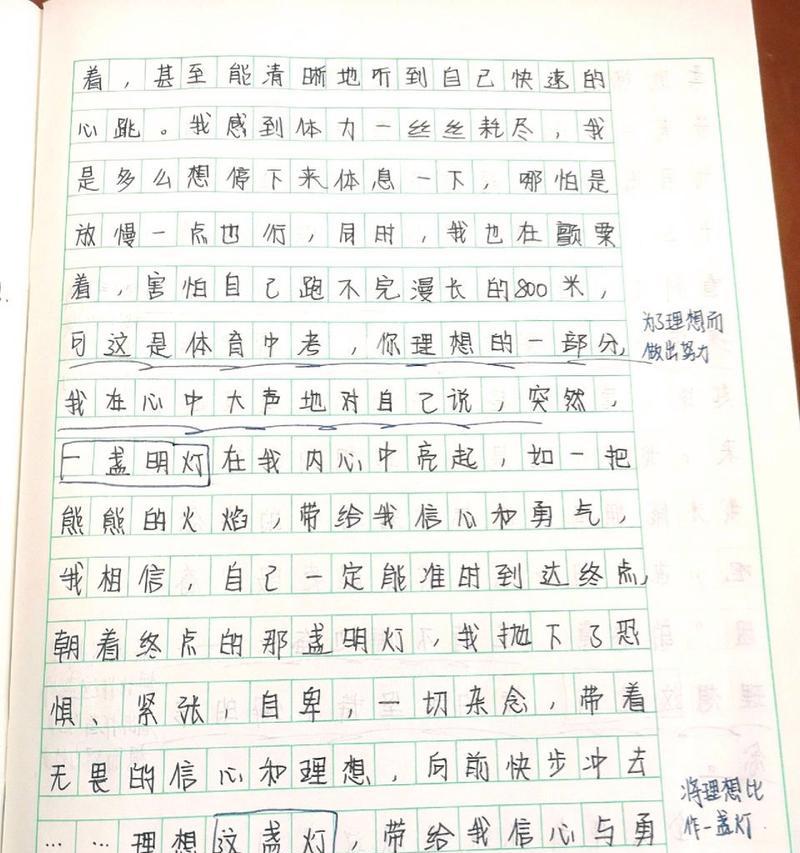 着，甚至能清晰地听到自己快速的
心跳。我感到体力一丝丝耗尽，我
是多么想停下来体息一下，哪怕是
放慢一点也行，同时，我也在颤栗
着，害怕自己跑不完漫长的800米，
可这是体育中考，你理想的一部分，
为了理想而
做出努力
我在心中大声地对自己说，突然，
一盏明灯在我内心中亮起，如一把
熊熊的火焰，带给我信心和勇气，
我相信，自己一定能准时到达终点，
朝着终点的那盏明灯，我抛下了恐
惧、紧张，自卑，一切杂念，带着
无畏的信心和理想，向前快步冲去
……理想这盏灯，带给我信心与勇
将理想比
作一盏灯